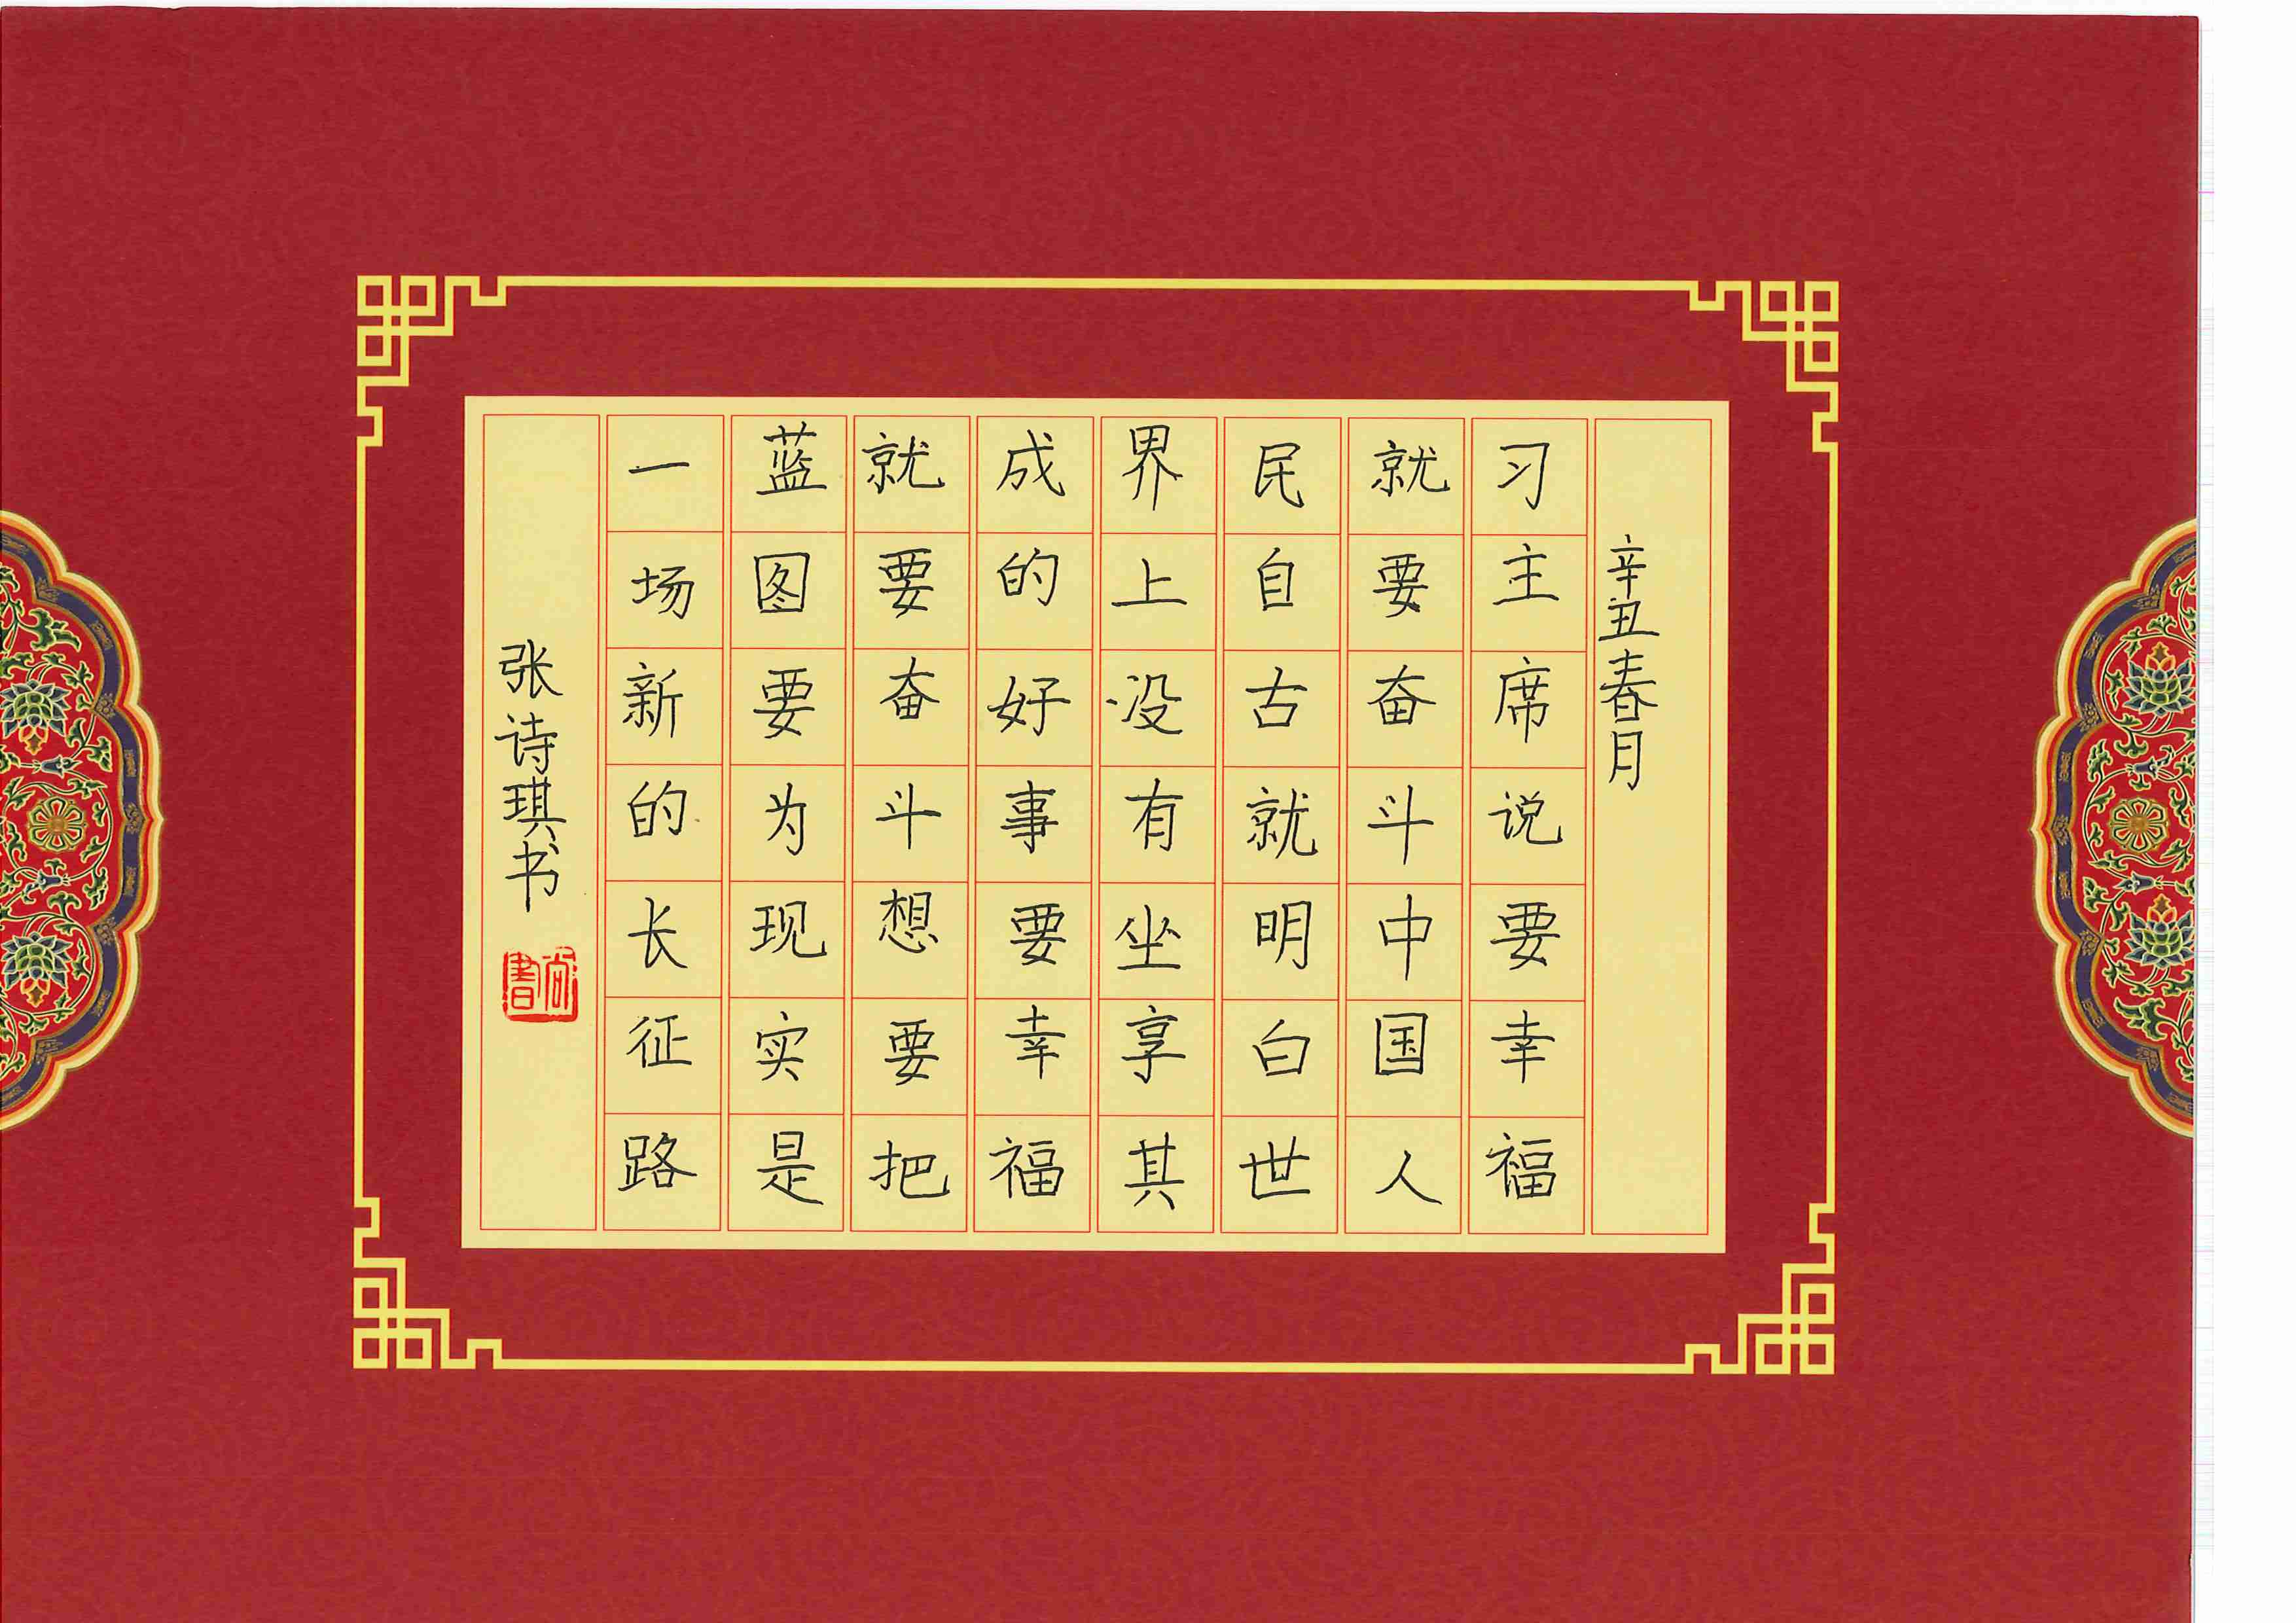 辛丑春月
习主席说要幸福
就要奋斗中国人
民自古就明白世
界上没有坐享其
成的好事要幸福
就要奋斗想要把
蓝图要为现实是
一场新的长征路
张诗琪书